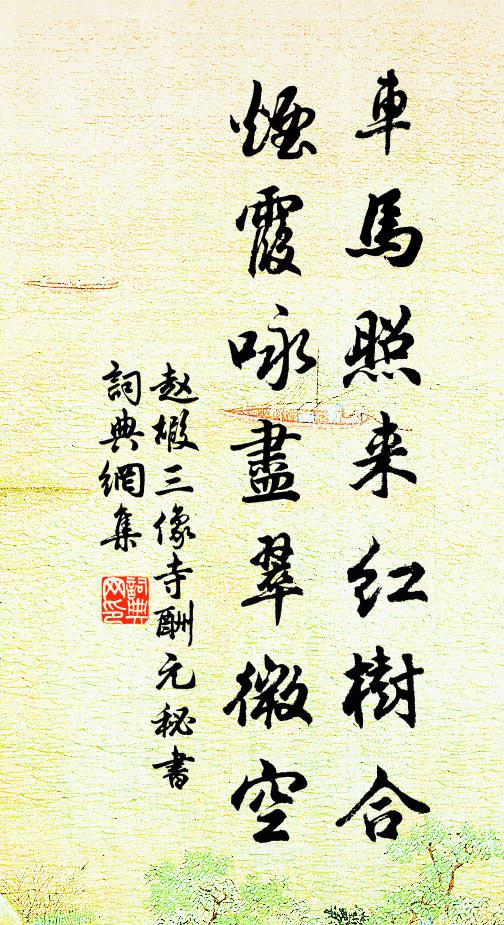 車馬照来紅樹合
煙霞咏盡翠微空
赵嘏三像寺酬元秘書
詞典網集
詞典
网印